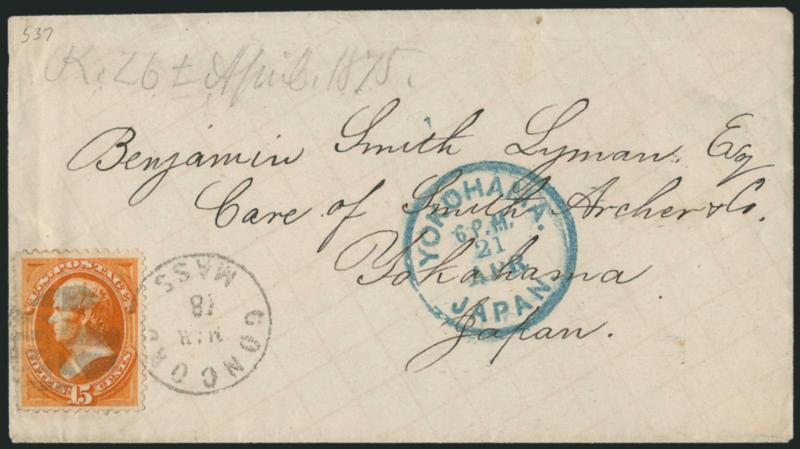 537
K. 26 ± April. 1875.
Benjamin Smith Lyman, Esq
Care of Smith Archer & Co.
Yokohama
Japan.
YOKOHAMA.
6 P.M.
21
APR
JAPAN
U.S. POSTAGE
FIFTEEN 15 CENTS
CONCORD
MAR
18
MASS